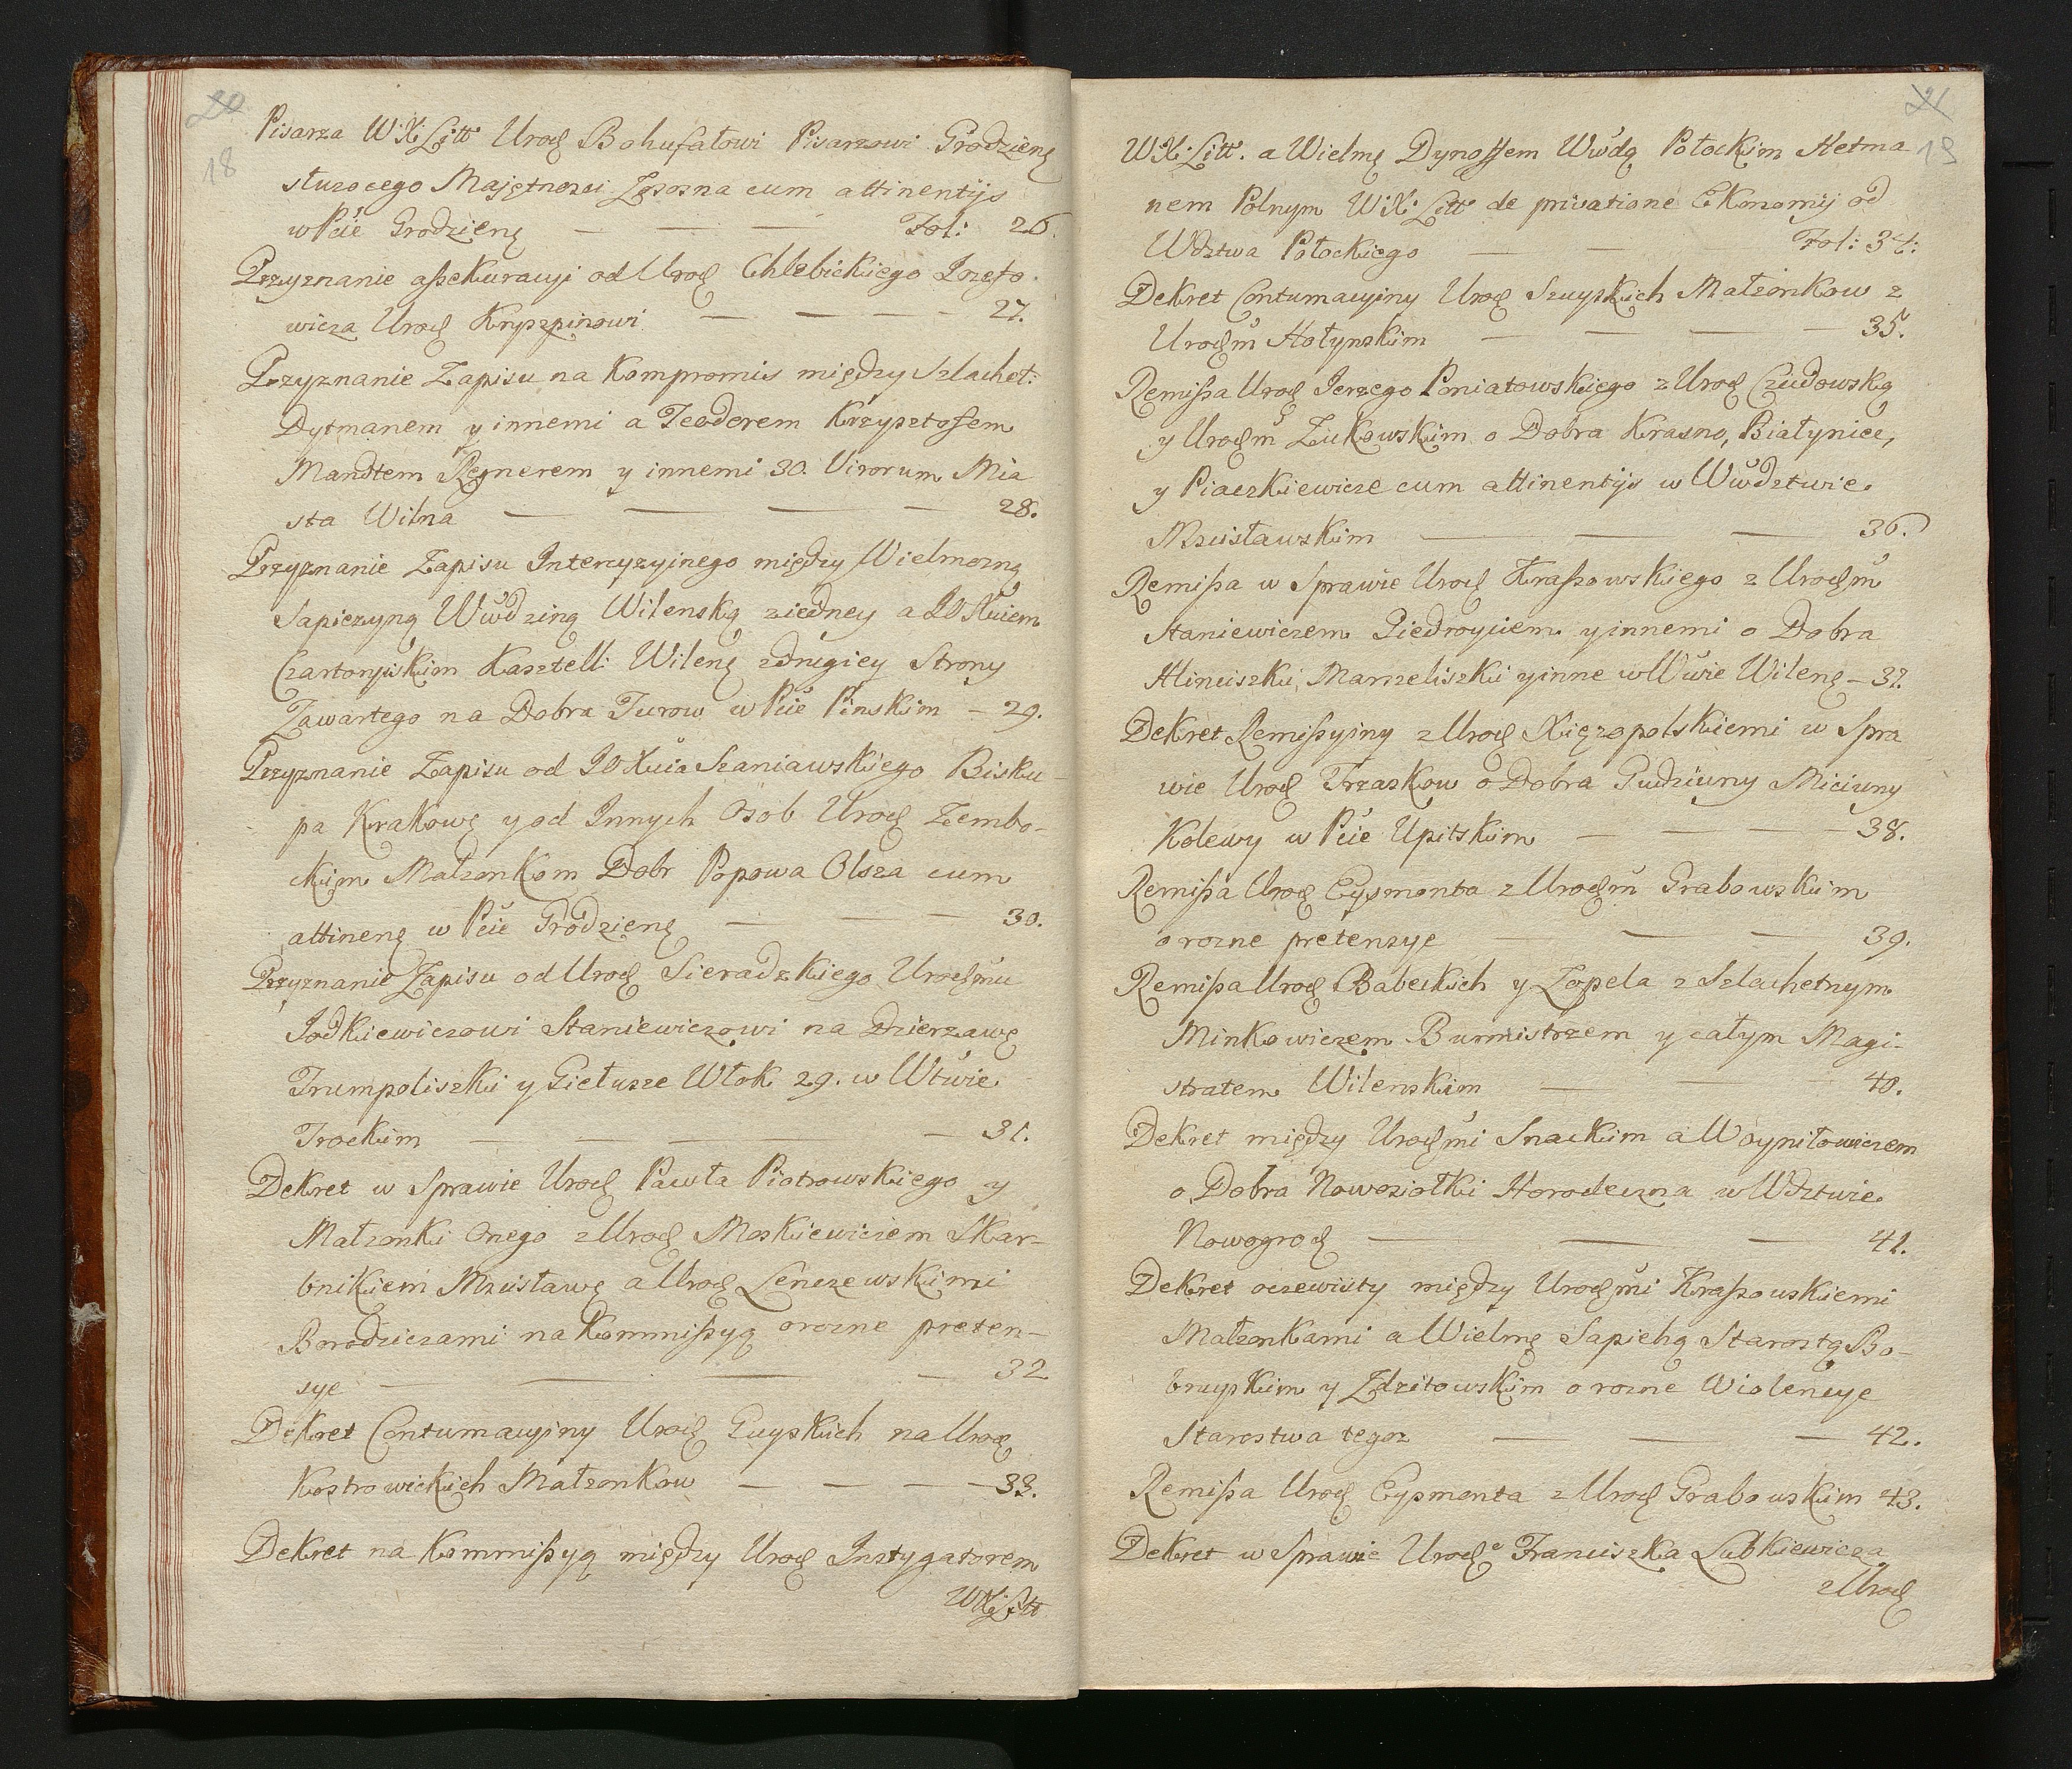 20
18
Pisarza W:X: Litt Urodz Bohufałowi Pisarzowi Grodzienę
służocego Majętnosci Zososna cum attinentijs
w Pcie Grodzienę Fol: 26.
Przyznanie assekuracyi od Urodz Chlebickiego Jozefo
wicza Urodz Kryszpinowi 27.
Przyznanie Zapisu na Kompromis między Szlachet:
Dytmanem y innemi a Teodorem Krzysztofem
Mandtem Regnerem y innemi 30. Virorum Mia
sta Wilna 28.
Przyznanie Zapisu Intercyzyinego między Wielmozną
Sapiezyną Wwdziną Wilenską ziedney a JO Xciem
Czartoryskim Kasztell: Wilenę z drugiey Strony
Zawartego na Dobra Turow w Pcie Pinskim 29.
Przyznanie Zapisu od JO Xcia Szaniawskiego Bisku-
pa Krakowę y od Innych Osob Urodz Zembo-
ckim Małzonkom Dobr Popowa Olsza cum
attinenę w Pcie Grodzienę 30.
Przyznanie Zapisu od Urodz Sieradzkiego Urodzmu
Jodkiewiczowi Staniewiczowi na Dzierzawę
Trumpoliszki y Giełusze Włok 29. w Wtwie
Trockim 31.
Dekret w Sprawie Urodz Pawła Piotrowskiego y
Małzonki Onego z Urodz Moskiewiczem Skar-
bnikiem Mscisławę a Urodz Lenczewskimi
Borodziczami na Kommissyą o rozne preten-
sye 32
Dekret Contumacyiny Urodz Guyskich na Urodz
Kostrowickich Małzonkow 33.
Dekret na Kommissyą między Urodz Instygatorem
WX: Litt
21
19
WX: Litt. a Wielmę Dynoffem Wwdą Połockim Hetma
nem Polnym W:X: Litt de privatione Ekonomij od
Wdztwa Połockiego Fol: 34:
Dekret Contumacyiny Urodz Szuyskich Małzonkow z
Urodzm Hołynskim 35.
Remissa Urodz Jerzego Poniatowskiego z Urodz Czudowską
y Urodzm Zukowskim o Dobra Krasno, Białynice,
y Piaczkiewicze cum attinentijs w Wwdztwie
Mscisławskim 36.
Remissa w Sprawie Urodz Kraszowskiego z Urodzm
Staniewiczem Giedroyciem y innemi o Dobra
Hlinciszki, Marszeliszki y inne w Wwie Wilenę 37.
Dekret Remissyiny z Urodz Xięzopolskiemi w Spra
wie Urodz Trzaskow o Dobra Gudziuny Miciuny
Kolewy w Pcie Upitskim 38.
Remissa Urodz Eysmonta z Urodzm Grabowskim
o rozne pretensye 39.
Remissa Urodz Babeckich y Zopela z Szlachetnym
Minkowiczem Burmistrzem y całym Magi-
stratem Wilenskim 40.
Dekret między Urodzmi Snackim a Woyniłowiczem
o Dobra Nowosiołki Horodeczna w Wdztwie
Nowogrodz 41.
Dekret oczewisty między Urodzmi Kraszowskiemi
Małzonkami a Wielmę Sapiehą Starostą Bo-
bruyskim y Zdzitowskim o rozne Wiolencye
Starostwa tegoz 42.
Remissa Urodz Eysmonta z Urodz Grabowskim 43.
Dekret w Sprawie Urodzo Franciszka Lubkiewicza
z Urodz